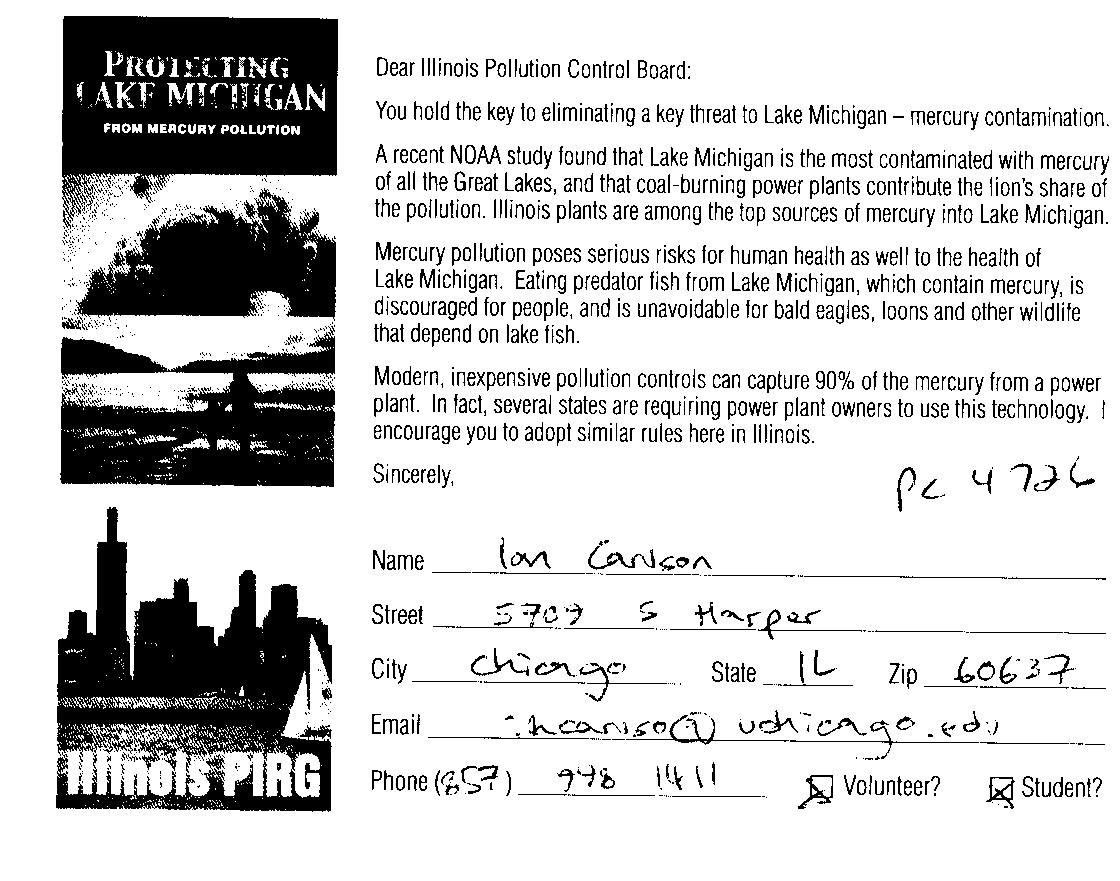 PROTECTING
LAKE MICHIGAN
FROM MERCURY POLLUTION
Dear Illinois Pollution Control Board:
You hold the key to eliminating a key threat to Lake Michigan – mercury contamination.
A recent NOAA study found that Lake Michigan is the most contaminated with mercury
of all the Great Lakes, and that coal-burning power plants contribute the lion's share of
the pollution. Illinois plants are among the top sources of mercury into Lake Michigan.
Mercury pollution poses serious risks for human health as well to the health of
Lake Michigan. Eating predator fish from Lake Michigan, which contain mercury, is
discouraged for people, and is unavoidable for bald eagles, loons and other wildlife
that depend on lake fish.
Modern, inexpensive pollution controls can capture 90% of the mercury from a power
plant. In fact, several states are requiring power plant owners to use this technology. I
encourage you to adopt similar rules here in Illinois.
Sincerely,
PC 4726
Name Ian Carlson
Street 5709 S Harper
City Chicago State IL Zip 60637
Email @uchicago.edu
Phone (857) 998 1411 Volunteer? Student?
Illinois PIRG